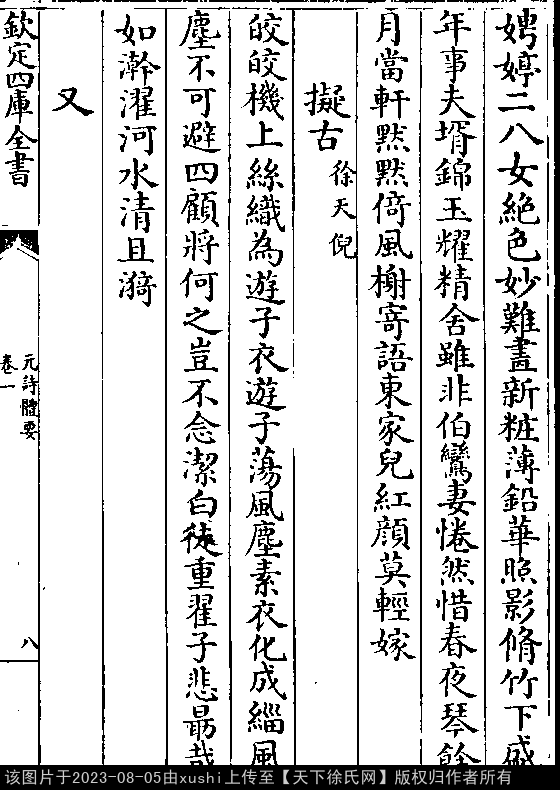 娉婷二八女絶色妙難畫新粧薄鉛華照影脩竹下戚
年事夫壻錦玉耀精舍雖非伯鸞妻惓然惜春夜琴餘
月當軒黙黙倚風榭寄語東家兒紅顔莫輕嫁
擬古 徐天倪
皎皎機上絲織為遊子衣遊子蕩風塵素衣化成緇風
塵不可避四顧將何之豈不念潔白徒重翟子悲曷哉
如澣濯河水清且漪
又
欽定四庫全書
元詩體要
卷一
八
该图片于2023-08-05由xushi上传至【天下徐氏网】版权归作者所有